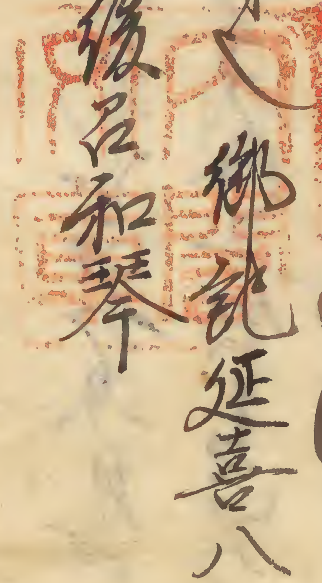 御記延喜八
後召和琴